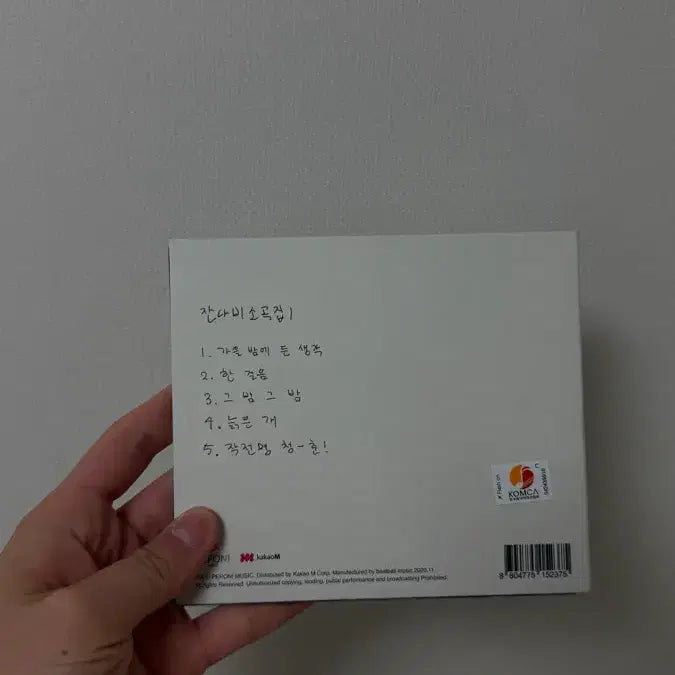 잔나비 소곡집 1
1. 가을 밤에 든 생각
2. 한 걸음
3. 그 밤 그 밤
4. 늙은 개
5. 작전명 청-춘!
KOMCA
kakaoM
PEPONI MUSIC. Distributed by Kakao M Corp. Manufactured by 2020.11
Rights Reserved. Unauthorized copying, lending, public performance and broadcasting Prohibited.
8 804775 152375